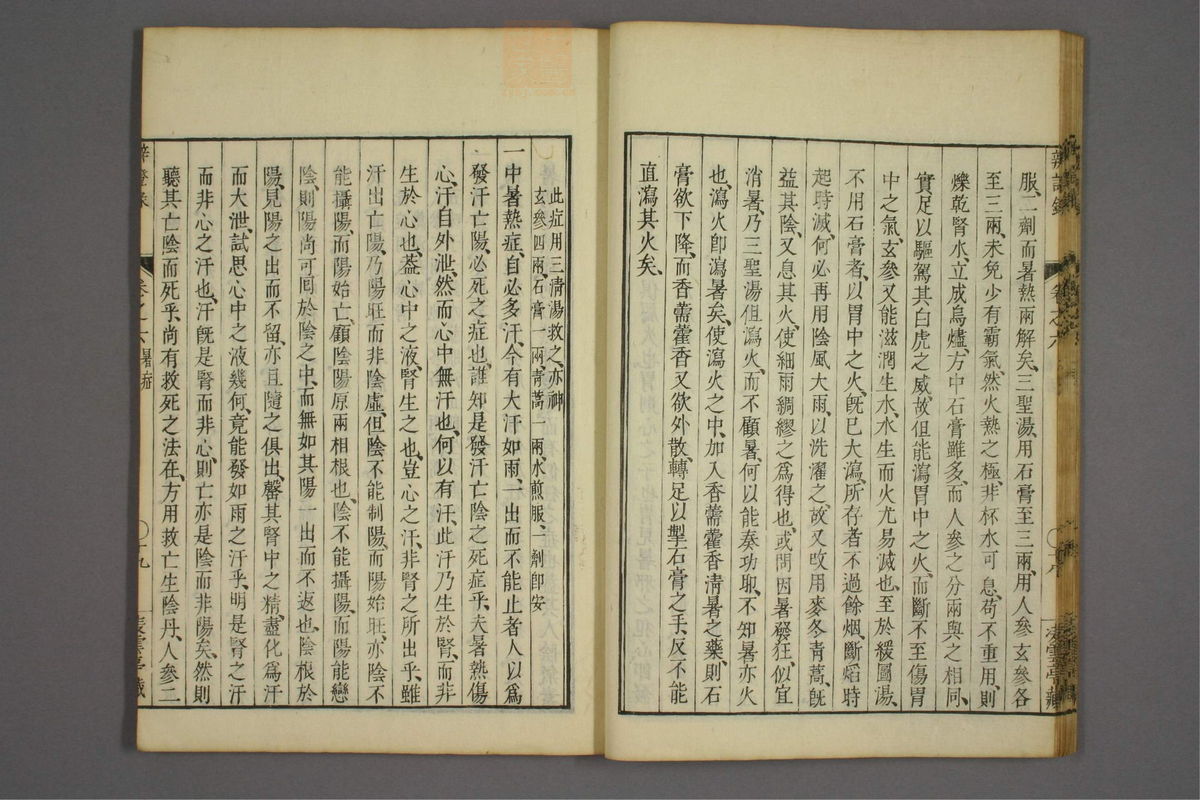 服二劑而暑熱兩解矣三聖湯用石膏至三兩用人參玄參各
至三兩未免少有霸氣然火熱之極非杯水可息苟不重用則
爍乾腎水立成烏燼方中石膏雖多而人參之分兩與之相同
實足以驅駕其白虎之威故但能瀉胃中之火而斷不至傷胃
中之氣玄參又能滋潤生水水生而火尤易滅也至於緩圖湯
不用石膏者以胃中之火旣已大瀉所存者不過餘烟斷熖時
起時滅何必再用陰風大雨以洗濯之故又改用麥冬青蒿旣
益其陰又息其火使細雨綢繆之爲得也或問因暑發狂似宜
消暑乃三聖湯但瀉火而不顧暑何以能奏功耶不知暑亦火
也瀉火卽瀉暑矣使瀉火之中加入香薷藿香淸暑之藥則石
膏欲下降而香薷藿香又欲外散轉足以掣石膏之手反不能
直瀉其火矣
此症用三清湯救之亦神
玄參四兩石膏一兩青蒿一兩水煎服一劑卽安
一中暑熱症自必多汗今有大汗如雨一出而不能止者人以爲
發汗亡陽必死之症也誰知是發汗亡陰之死症乎夫暑熱傷
心汗自外泄然而心中無汗也何以有汗此汗乃生於腎而非
生於心也葢心中之液腎生之也豈心之汗非腎之所出乎雖
汗出亡陽乃陽旺而非陰虛但陰不能制陽而陽始旺亦陰不
能攝陽而陽始亡顧陰陽原兩相根也陰不能攝陽而陽能戀
陰則陽尚可囘於陰之中而無如其陽一出而不返也陰根於
陽見陽之出而不留亦且隨之俱出罄其腎中之精盡化爲汗
而大泄試思心中之液幾何竟能發如雨之汗乎明是腎之汗
而非心之汗也汗旣是腎而非心則亡亦是陰而非陽矣然則
聽其亡陰而死乎尚有救死之法在方用救亡生陰丹人參二
辛證录 卷之六 暑症 ○ 十九